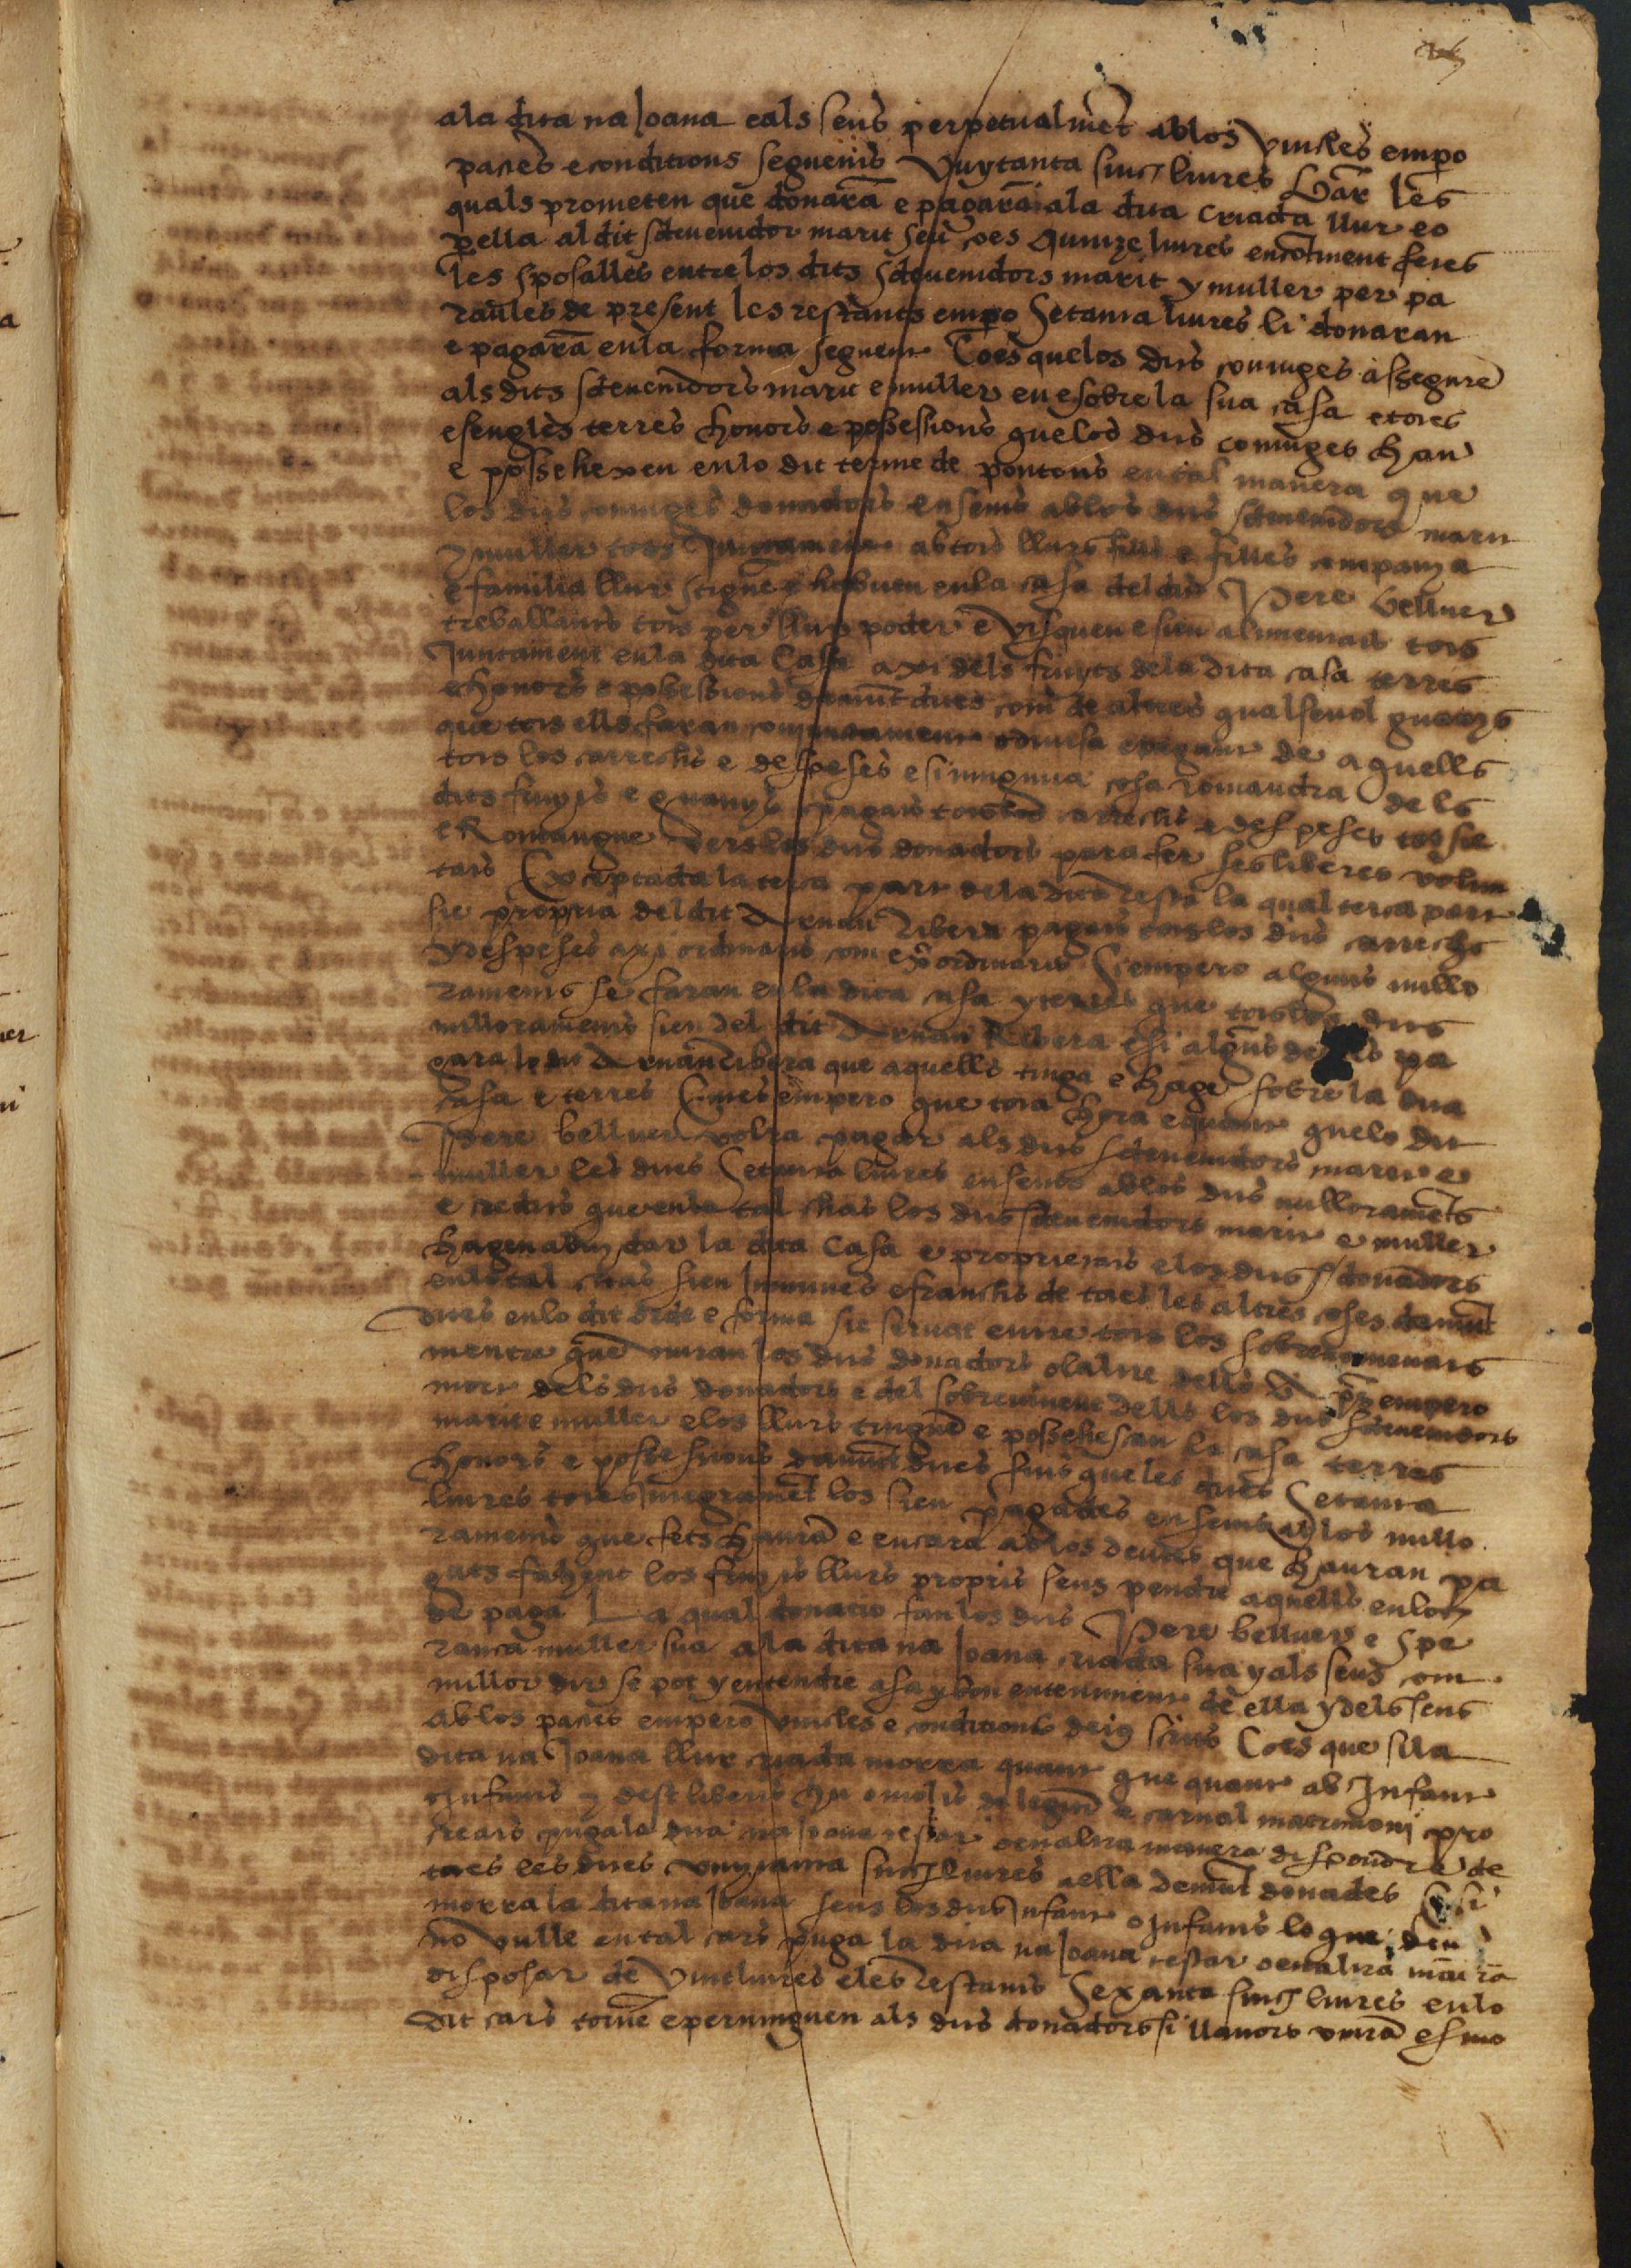 ala dita na Joana eals seus perpetualmet ablos vincles empo
pactes e conditions seguents Vuytanta sinc liures Bar les
quals prometen que donara e pagara ala dita criada llur eo
p ella al dit sdevenidor marit seu ço es Quinze liures encotinent fetes
les sposalles entre los dits sdevenidors marit y muller per pa
raules de present les restants empo Setanta liures li donaran
e pagara en la forma seguent Ço es que los dits coniuges assegure
als dits sdevenidors marit e muller en e sobre la sua casa e totes
e sengles terres honors e possessions que los dits coniuges han
e possehexen en lo dit terme de pontons en tal manera que
los dits coniuges donadors ensems ablos dits sdevenidors marit
y muller tots Juntament ab tots llurs fills e filles companya
e familia llur stigue e habiten en la casa del dit Pere bellver
treballants tots per llur poder e visquen e sien alimentats tots
Juntament en la dita Casa axi dels fruyts dela dita casa terres
e honors e possessions damut dites com de altres qualsevol guanys
que tots ells faran conjuntament o divisa e pagant de aquells
tots los carrechs e despeses e si ninguna cosa romandra dels
dits fruyts e guanys pagats tots los carrechs e despeses tot sie
e Romangue vers los dits donadors pera fer ses liberes volun
tats Exceptada la terça part dela dita resta la qual terça part
sie propria del dit Arnau Ribera pagats tots los dits carrechs
y despeses axi ordinaris com exordinaris Si empero alguns millo
raments se faran en la dita casa y terres que tots los dits
milloraments sien del dit Arnau Ribera e si alguns deutes pa
gara lo dit Arnau ribera que aquells tinga e hage sobre la dita
casa e terres Entes empero que tota hora e quant que lo dit
Pere bellver volra pagar als dits sdevenidors marit e
muller les dites Setanta liures ensems ablos dits milloramets
e credits que en lo tal chas los dits sdevenidors marit e muller
hagen abuydar la dita Casa e proprietats e los dits donadors
en lo tal chas sien Inmunes e franchs de totes les altres coses damut
dites en lo dit orde e forma sie servat entre tots los sobrenomenats
mentre que viuran los dits donadors o laltre dells Apres empero
mort dels dits donadors e del sobrevivent dells los dits sdevenidors
marit e muller e los llurs tingue e possehescan la casa terres
honors e possessions damut dites fins que les dites Setanta
liures totes Integramet los sien pagades ensems ab los millo
raments que fets haura e encara ablos deutes que hauran pa
gats fahent los fruyts llurs propris sens pendre aquells en loch
de paga La qual donatio fan los dits Pere bellver e Spe
ransa muller sua ala dita na Joana criada sua y als seus com
millor dir se pot y entendre a sa y bon enteniment de ella y dels seus
Ablos pactes empero vincles e conditions deius scrits Ço es que si la
dita na Joana llur criada morra quant que quant ab Infant
o Infants y des liberis hu o molts de legitim e carnal matrimoni pro
creats puga la dita na Joana testar o en altra manera dispondre de
totes les dites vuytanta sinch liures a ella demut donades E si
morra la dita na Joana sens los dits Infant o Infants lo que deu
no vulle en tal cars puga la dita na Joana testar o en altra mãera
disposar de Vint liures e les restants Sexanta sinch liures en lo
dit cars torne e pertinguen als dits donadors si llavors viura e si no